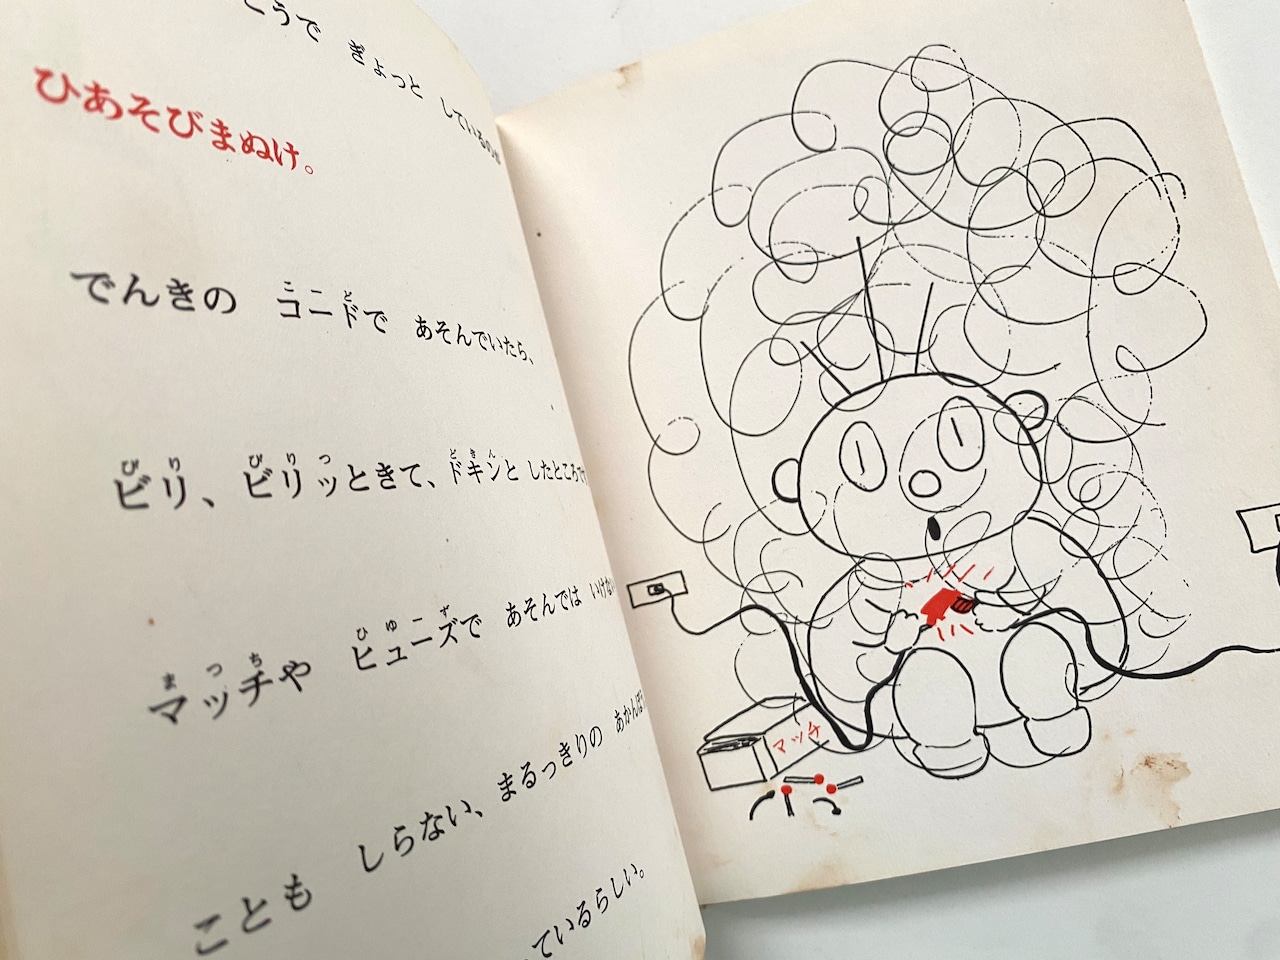 こうで ぎょっと しているのは
ひあそびまぬけ。
でんきの コードで あそんでいたら、
ビリ、ビリッときて、ドキンと したところで
マッチや ヒューズで あそんでは いけない
ことも しらない、まるっきりの あかんぼ
ているらしい。
マッチ